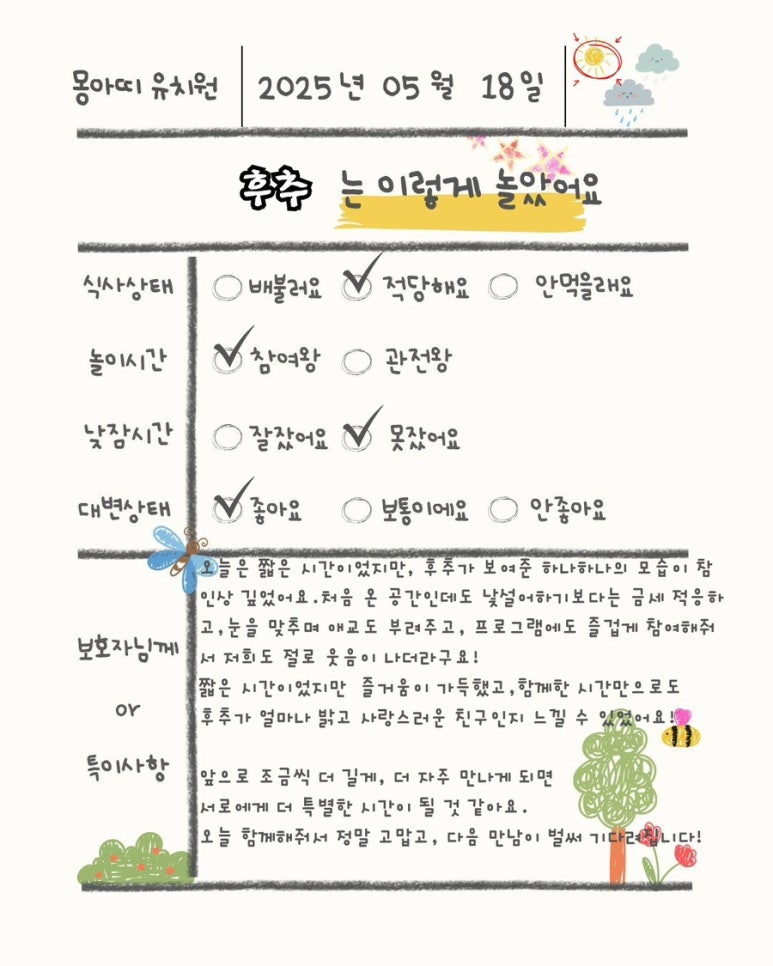 몽아띠 유치원 2025년 05월 18일
후추 는 이렇게 놀았어요
식사상태 배불러요 적당해요 안먹을래요
놀이시간 참여왕 관전왕
낮잠시간 잘잤어요 못잤어요
대변상태 좋아요 보통이에요 안좋아요
보호자님께
or
특이사항
오늘은 짧은 시간이었지만, 후추가 보여준 하나하나의 모습이 참
인상 깊었어요.처음 온 공간인데도 낯설어하기보다는 금세 적응하
고,눈을 맞추며 애교도 부려주고, 프로그램에도 즐겁게 참여해줘
서 저희도 절로 웃음이 나더라구요!
짧은 시간이었지만 즐거움이 가득했고,함께한 시간만으로도
후추가 얼마나 밝고 사랑스러운 친구인지 느낄 수 있었어요!
앞으로 조금씩 더 길게, 더 자주 만나게 되면
서로에게 더 특별한 시간이 될 것 같아요.
오늘 함께해줘서 정말 고맙고, 다음 만남이 벌써 기다려집니다!